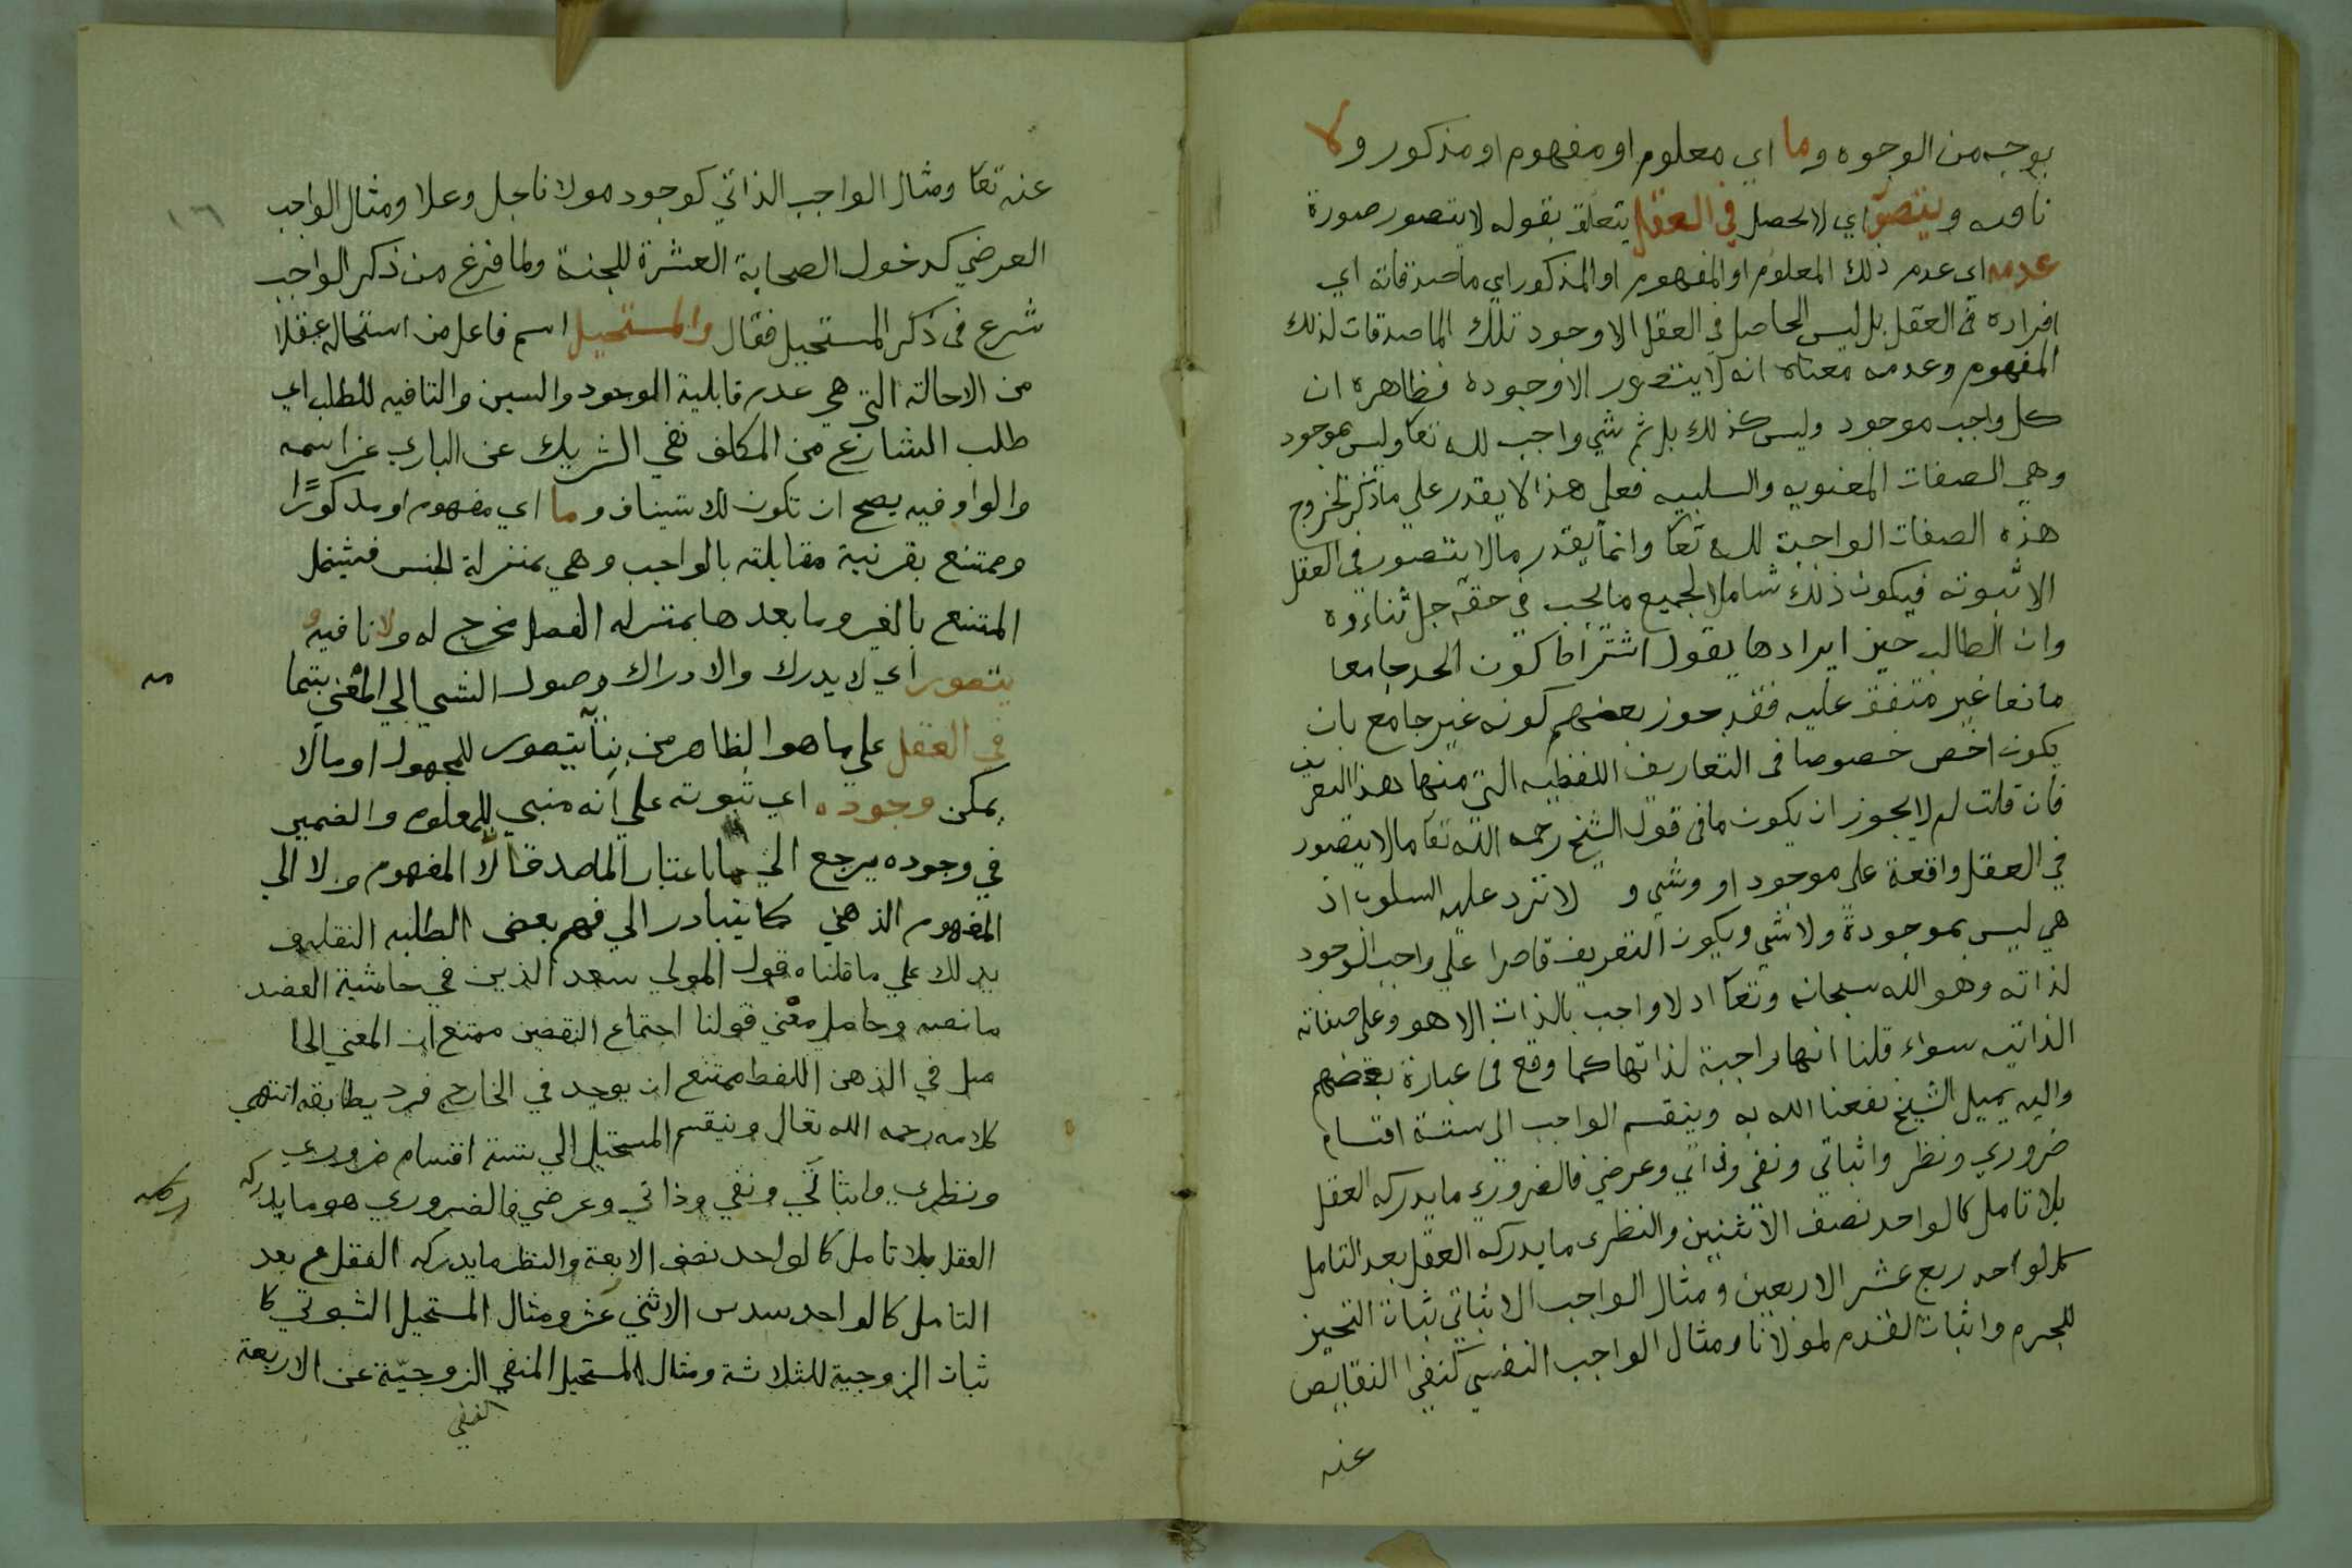 بوجه من الوجوه وما اي معلوم او مفهوم او مذكور ولا
نافيه ويتصور اي لا يحصل في العقل يتعلق بقوله لا يتصور صورة
عدمه اي عدم ذلك المعلوم او المفهوم او المذكور اي ما صدقاته اي
افراده في العقل بل ليس الحاصل في العقل الا وجود تلك الماصدقات لذلك
المفهوم وعدمه معناه انه لا يتصور الا وجوده فظاهره ان
كل واجب موجود وليس كذلك بل ثم شي واجب لله تعا وليس بموجود
وهي الصفات المعنويه والسلبيه فعلي هذا لا يقدر علي ما ذكر لخروج
هذه الصفات الواجبة لله تعا وانما يقدر ما لا يتصور في العقل
الا ثبوته فيكون ذلك شاملا لجميع ما يجب في حقه جل ثناءوه
وان الطالب حين ايرادها يقول اشتراط كون الحد جامعا
مانعا غير متفق عليه فقد جوز بعضهم كونه غير جامع بان
يكون اخص خصوصا في التعاريف اللفظيه التي منها هذا التعريف
فان قلت لم لا يجوز ان يكون ما في قول الشيخ رحمه الله تعا ما لا يتصور
في العقل واقعة علي موجود او وشي و لا ترد عليه السلوب اذ
هي ليس بموجودة ولا شي ويكون التعريف قاصرا علي واجب الوجود
لذاته وهو الله سبحانه وتعا اد لا واجب بالذات الا هو وعلي صفاته
الذاتيه سواء قلنا انها واجبة لذاتها كما وقع في عبارة بعضهم
واليه يميل الشيخ نفعنا الله به وينقسم الواجب الي ستة اقسام
ضروري ونظر واثباتي ونفي وذاتي وعرضي فالضروري ما يدركه العقل
بلا تامل كالواحد نصف الاثنين والنظري ما يدركه العقل بعد التامل
كالواحد ربع عشر الاربعين ومثال الواجب الاثباتي ثبات التحيز
للجرم واثبات القدم لمولانا ومثال الواجب النفسي كنفي النقايص
عنه
١٦
عنه تعا ومثال الواجب الذاتي كوجود مولانا جل وعلا ومثال الواجب
العرضي كدخول الصحابة العشرة للجنة ولما فرغ من ذكر الواجب
شرع في ذكر المستحيل فقال والمستحيل اسم فاعل من استحال عقلا
من الاحالة التي هي عدم قابلية الوجود والسين والتا فيه للطلب اي
طلب الشارع من المكلف نفي الشريك عن الباري عز اسمه
والواو فيه يصح ان تكون للاستيناف وما اي مفهوم او مذكورًا
وممتنع بقرنية مقابلته بالواجب وهي بمنزلة الجنس فيشمل
المتنع بالغير وما بعدها بمنزله الفصل مخرج له ولا نافيه و
يتصور اي لا يدرك والادراك وصول الشي الي المعني بتما
مه
في العقل علي ما هو الظاهر من بنا يتصور للمجهول او ما لا
يمكن وجوده اي ثبوته علي انه مبني للمعلوم والضمير
في وجوده يرجع الي ما باعتبار الماصدق لا المفهوم ولا الي
المفهوم الذهني كما يتبادر الي فهم بعض الطلبه
يدلك علي ما قلناه قول المولي سعد الذين في حاشية العضد
ما نصه وحاصل معني قولنا اجتماع النقضين ممتنع ان المعني الحا
صل في الذهن اللفظ ممتنع ان يوجد في الخارج فرد يطابقه انتهي
كلامه رحمه الله تعال وينقسم المستحيل الي ستة اقسام ضروري
ونظري واثباتي ونفي وذاتي وعرضي فالضروري هو ما يدركه
العقل بلا تامل كالواحد نصف الاربعة والنظر ما يدركه العقل بعد
التامل كالواحد سدس الاثني عشر ومثال المستحيل الثبوتي كا
ثبات الزوجية للثلاثة ومثال المستحيل المنفي الزوجيّة عن الاربعة